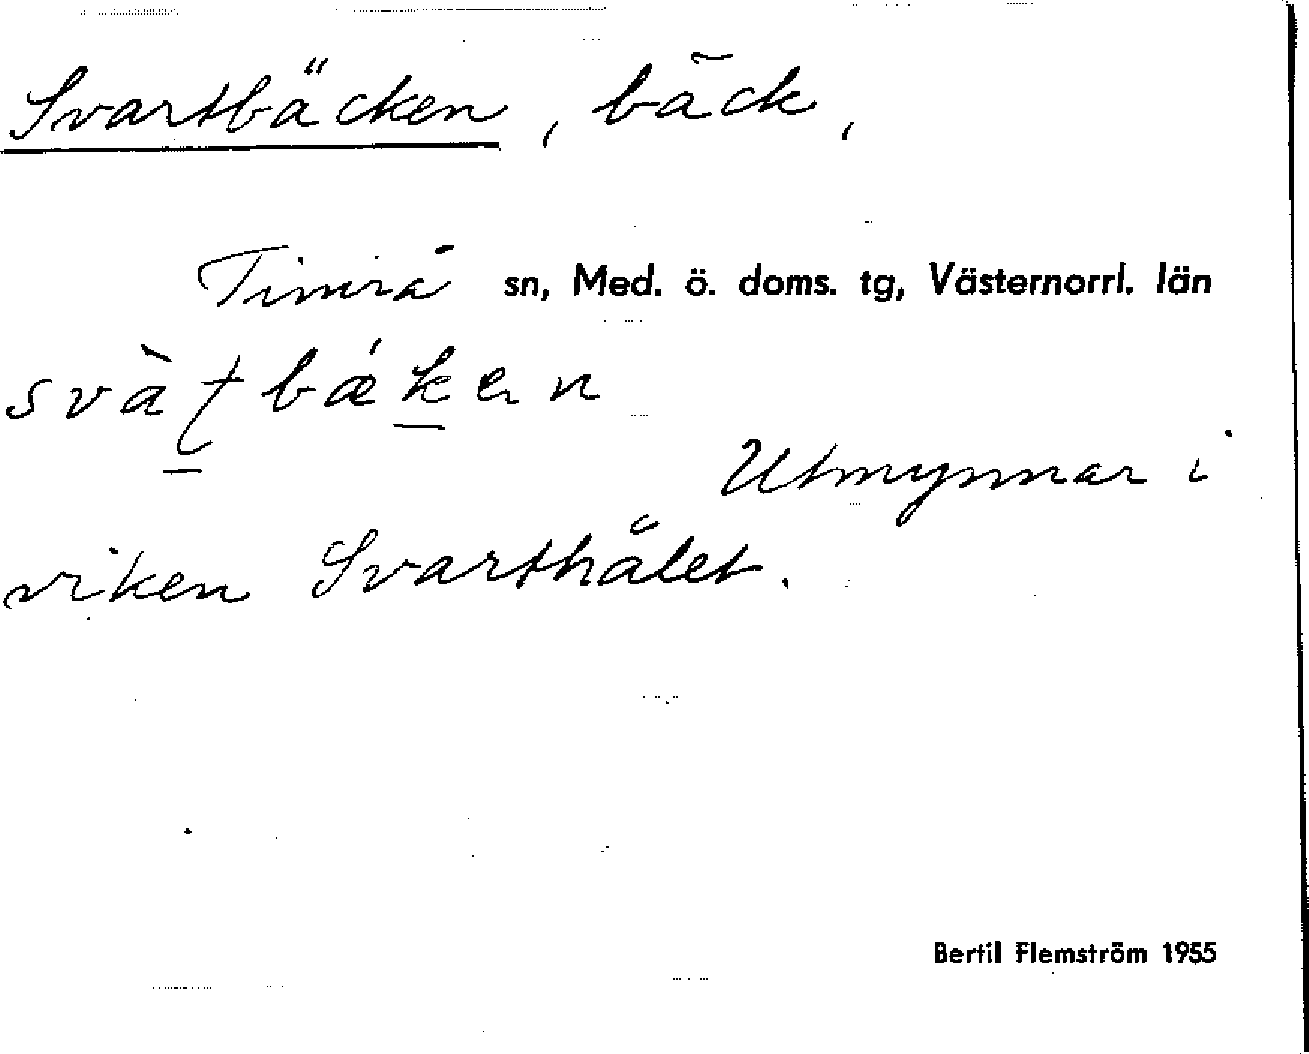 Svartbäcken, bäck,
Timrå sn, Med. ö. doms. tg, Västernorrl. län
svàʈbǽken
Utmynnar i
viken Svarthålet.
Bertil Flemström 1955